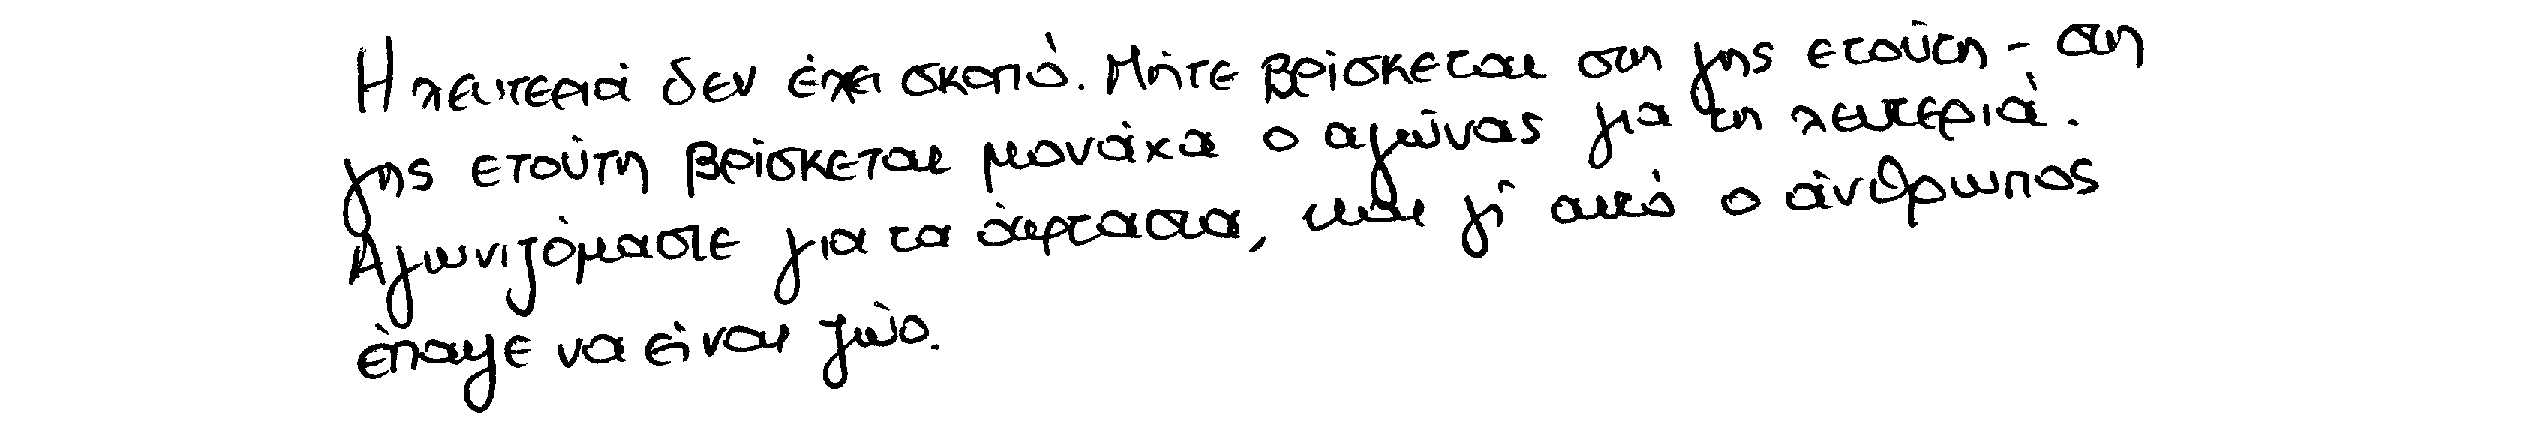 Η λευτεριά δεν έχει σκοπό. Μήτε βρίσκεται στη γης ετούτη - στη
γης ετούτη βρίσκεται μονάχα ο αγώνας για τη λευτεριά.
Αγωνιζόμαστε για τα άφταστα, και γι' αυτό ο άνθρωπος
έπαψε να είναι ζώο.